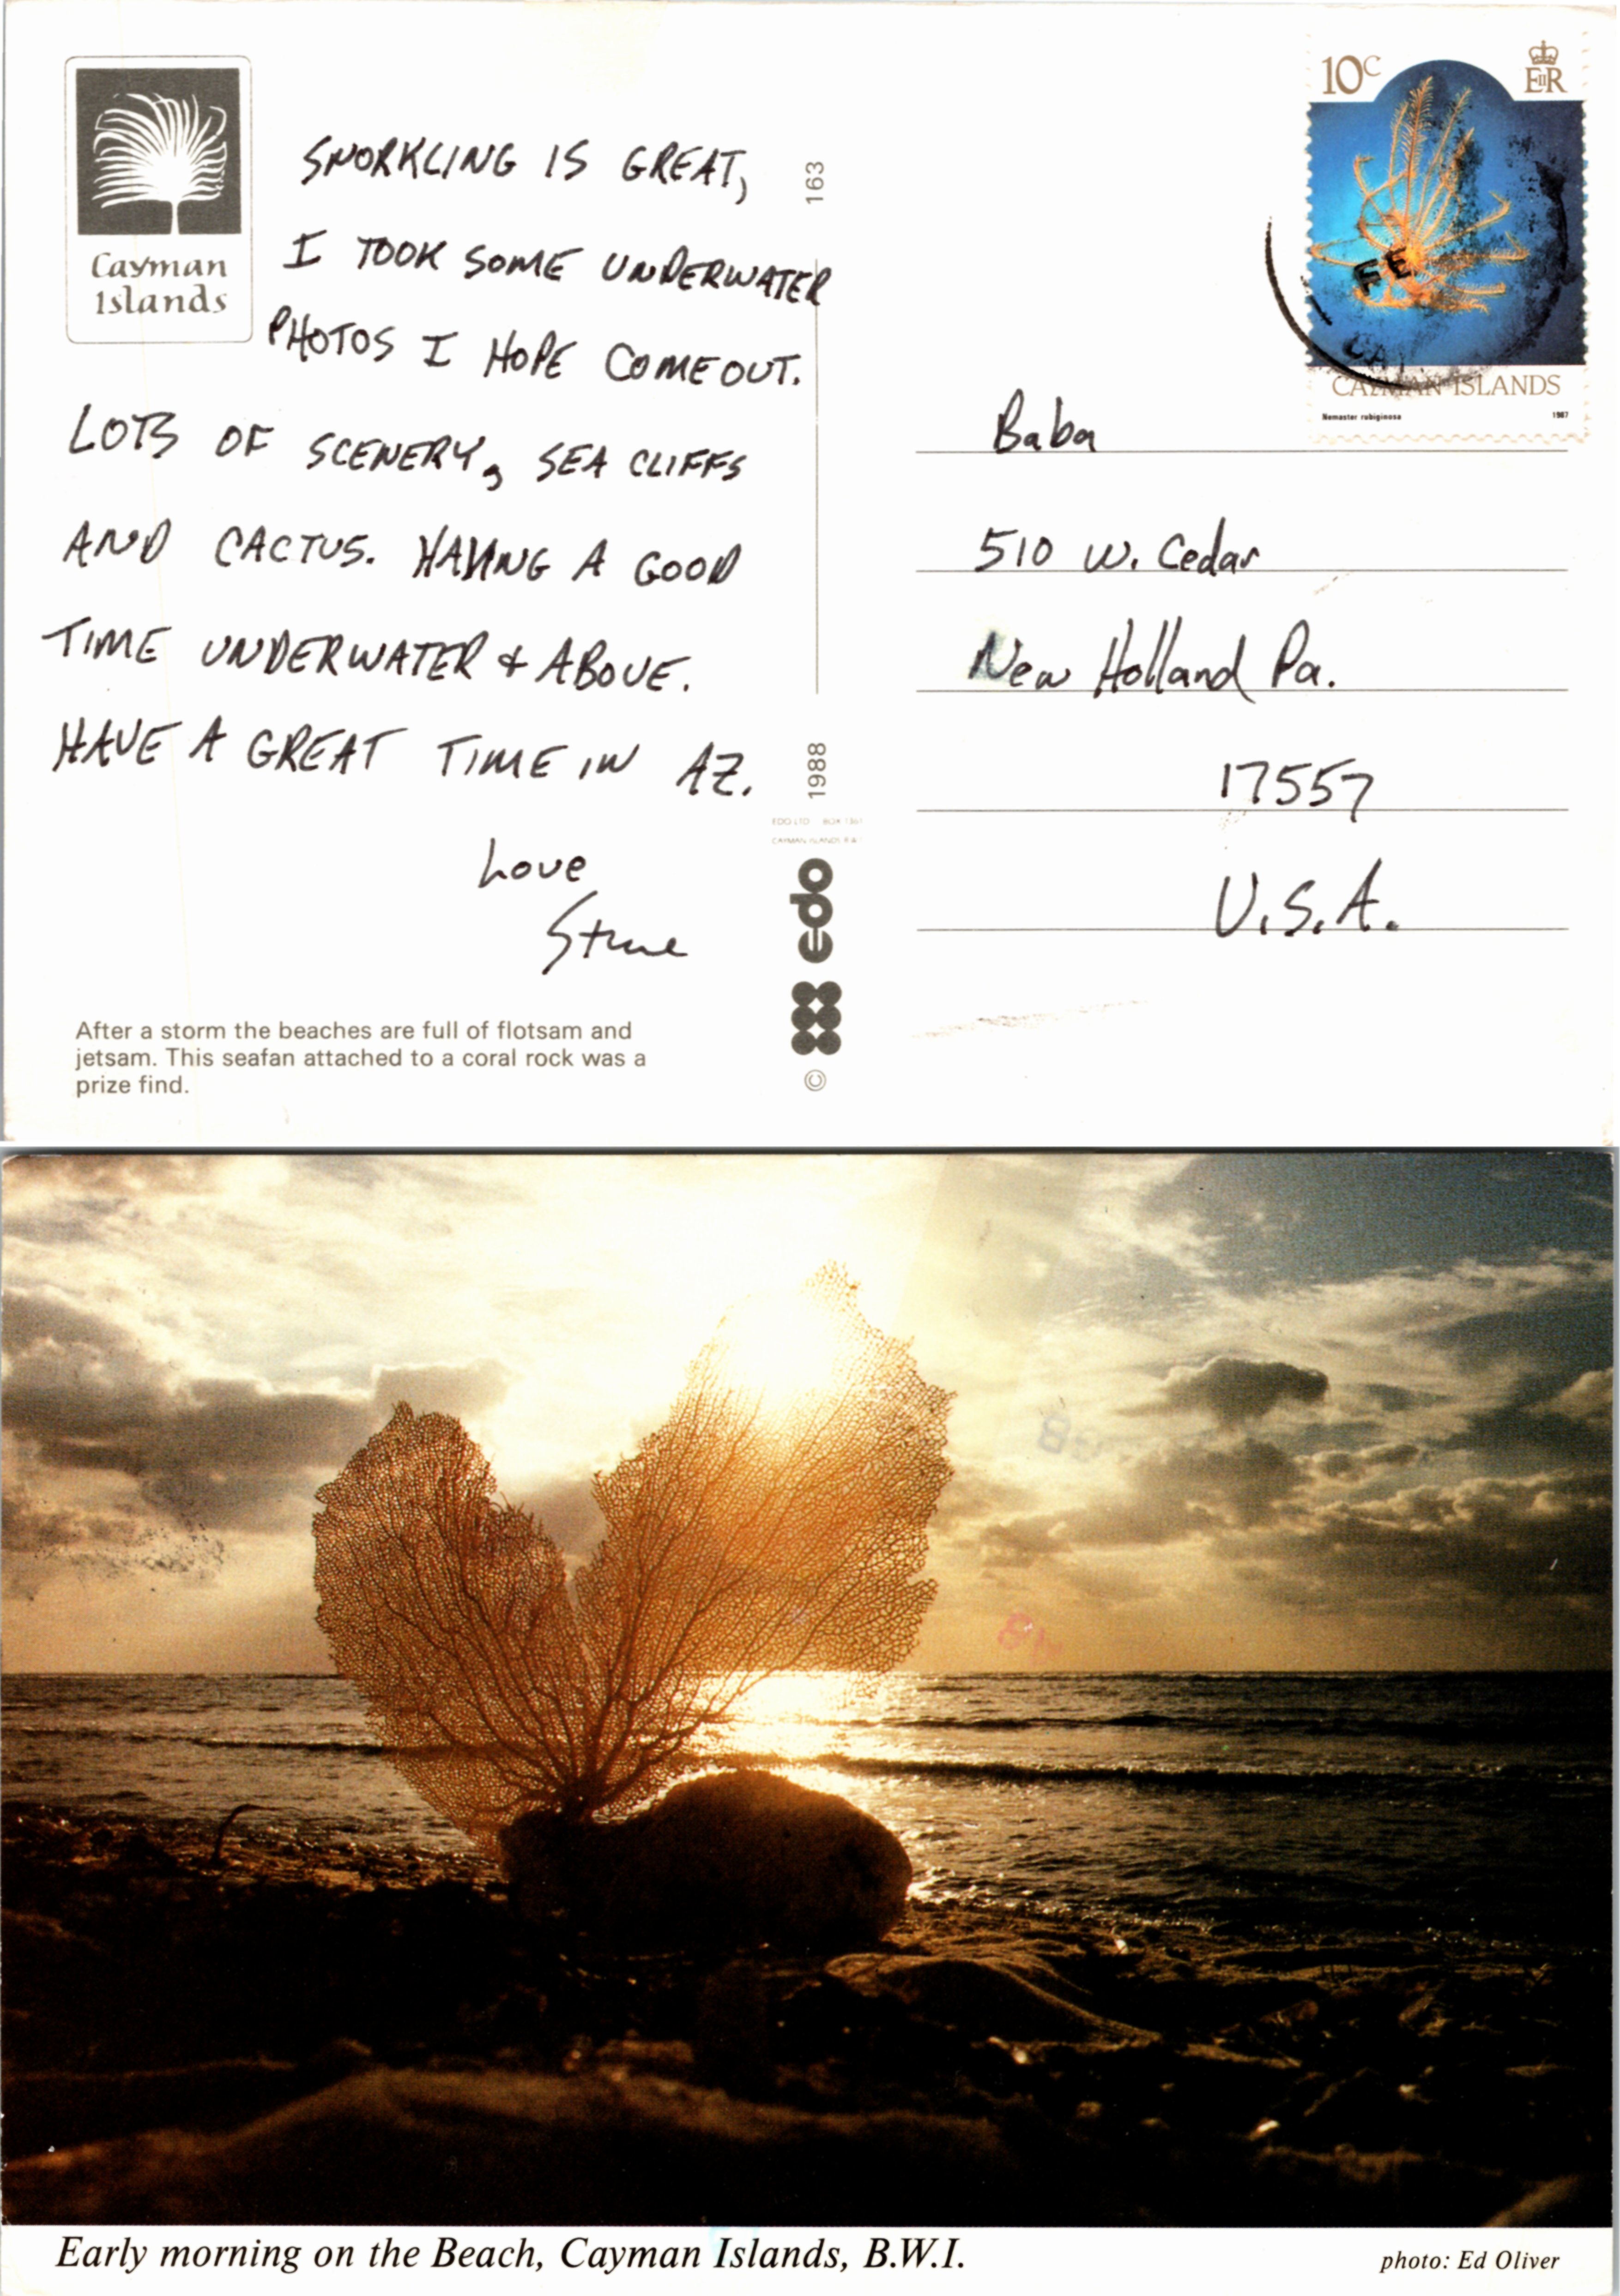 Cayman
Islands
SNORKLING IS GREAT,
I TOOK SOME UNDERWATER
PHOTOS I HOPE COME OUT.
LOTS OF SCENERY, SEA CLIFFS
AND CACTUS. HAVING A GOOD
TIME UNDERWATER & ABOVE.
HAVE A GREAT TIME IN AZ.
Love
Steve
After a storm the beaches are full of flotsam and
jetsam. This seafan attached to a coral rock was a
prize find.
163
1988
EDO LTD BOX 1361
CAYMAN ISLANDS B.W.I.
edo
©
10c
EIIR
FE
CAYMAN ISLANDS
Nemaster rubiginosa 1987
Baba
510 W. Cedar
New Holland Pa.
17557
U.S.A.
Early morning on the Beach, Cayman Islands, B.W.I.
photo: Ed Oliver